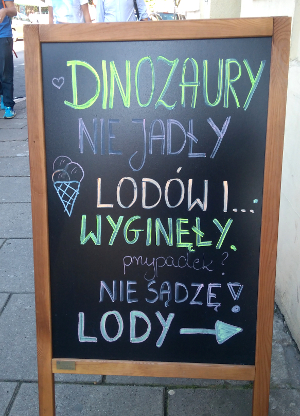 DINOZAURY
NIE JADŁY
LODÓW I...:
WYGINĘŁY.
przypadek?
NIE SĄDZĘ!
LODY →